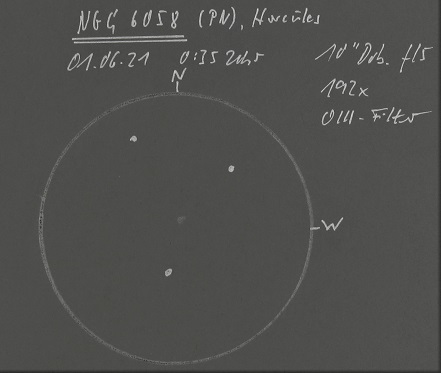 NGC 6058 (PN), Hercules
01.06.21 0:35 Uhr
10" Dob. f/5
192x
OIII-Filter
N
W